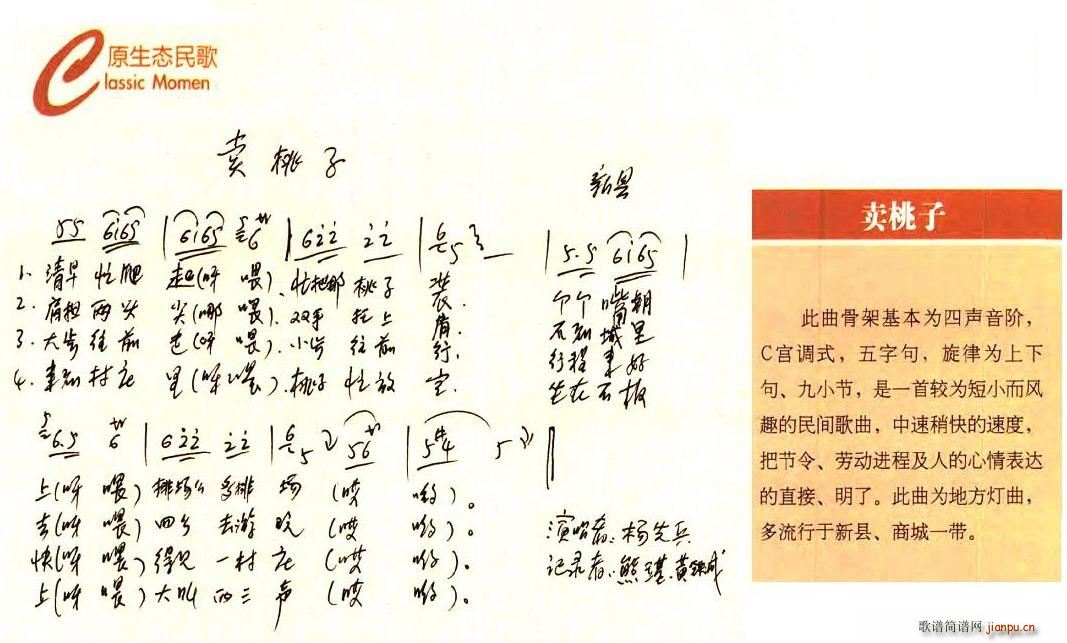 原生态民歌
Classic Momen
卖桃子
新县
55 6165 6165 6 622 22 5
5.5 6165
1. 清早忙爬起(呀喂).忙把那桃子装.
个个嘴朝
2. 肩担两头尖(哪喂).双手托上肩.
石
城里
3. 大步往前走(呀喂).小步往前行.
行程
好
4. 来到村庄里(呀喂).桃子忙放定.
坐在石板
6.5 6 622 22 5 56 5#4 5
上(呀喂)
场(哎哟)。
去(呀喂)
去游玩(哎哟)。
快(呀喂)得见一村庄(哎哟)。
上(呀喂)大叫两三声(哎哟)。
演唱者:杨先兵
记录者:熊
卖桃子
此曲骨架基本为四声音阶，
C宫调式，五字句，旋律为上下
句、九小节，是一首较为短小而风
趣的民间歌曲，中速稍快的速度，
把节令、劳动进程及人的心情表达
的直接、明了。此曲为地方灯曲，
多流行于新县、商城一带。
歌谱简谱网 jianpu.cn